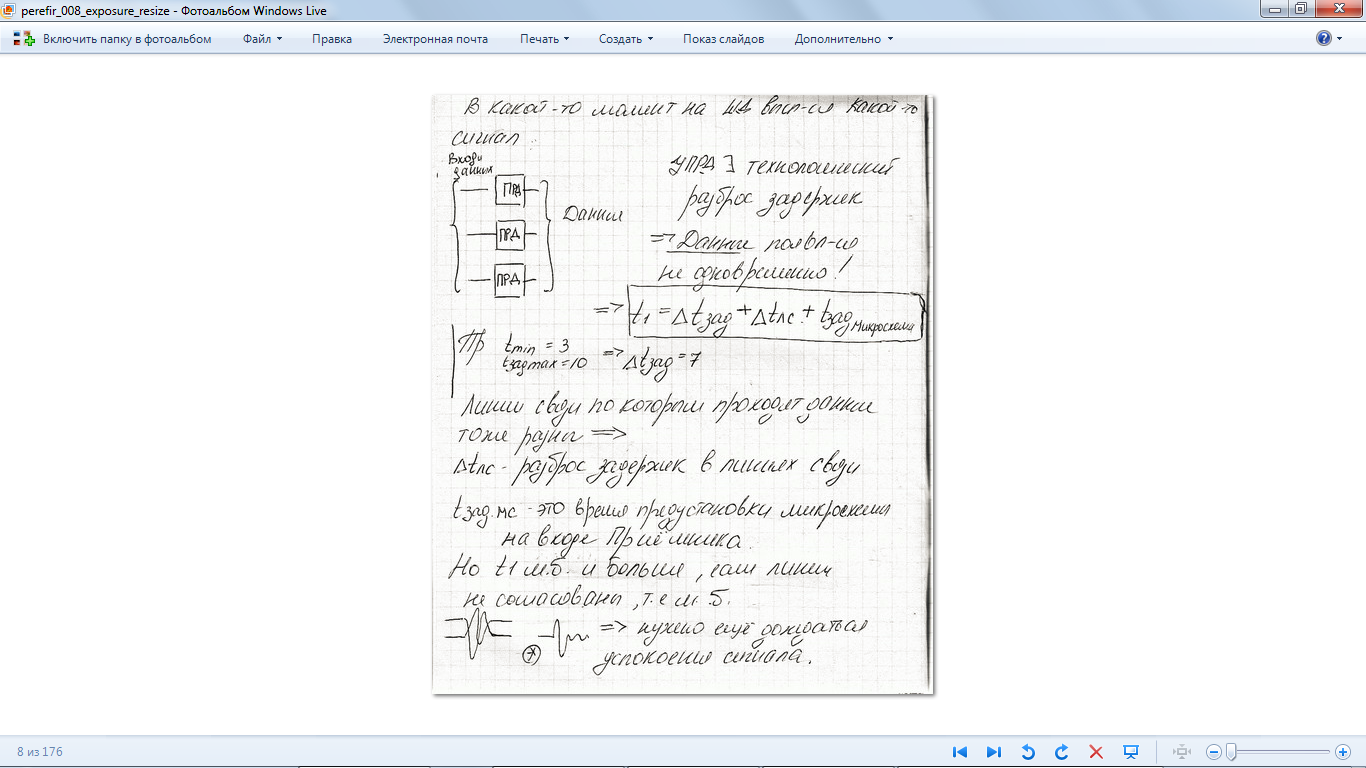 perefir_008_exposure_resize - Фотоальбом Windows Live
Включить папку в фотоальбом Файл Правка Электронная почта Печать Создать Показ слайдов Дополнительно
В какой-то момент на ШД выст-ся какой-то
сигнал
Входы
данных
ПРД
ПРД
ПРД
Данные
УПРД ∃ технологический
разброс задержек
=> Данные появл-ся
не одновременно!
=> t1 = Δtзад + Δtлс. + tзад Микросхема
Пр tmin = 3
tзад max = 10 => Δtзад = 7
Линии связи по которым проходят данные
тоже разны =>
Δtлс - разброс задержек в линиях связи
tзад.мс - это время предустановки микросхемы
на входе Приёмника.
Но t1 м.б. и больше, если линии
не согласованы, т.е м.б.
=> нужно ещё дождаться
успокоения сигнала.
8 из 176